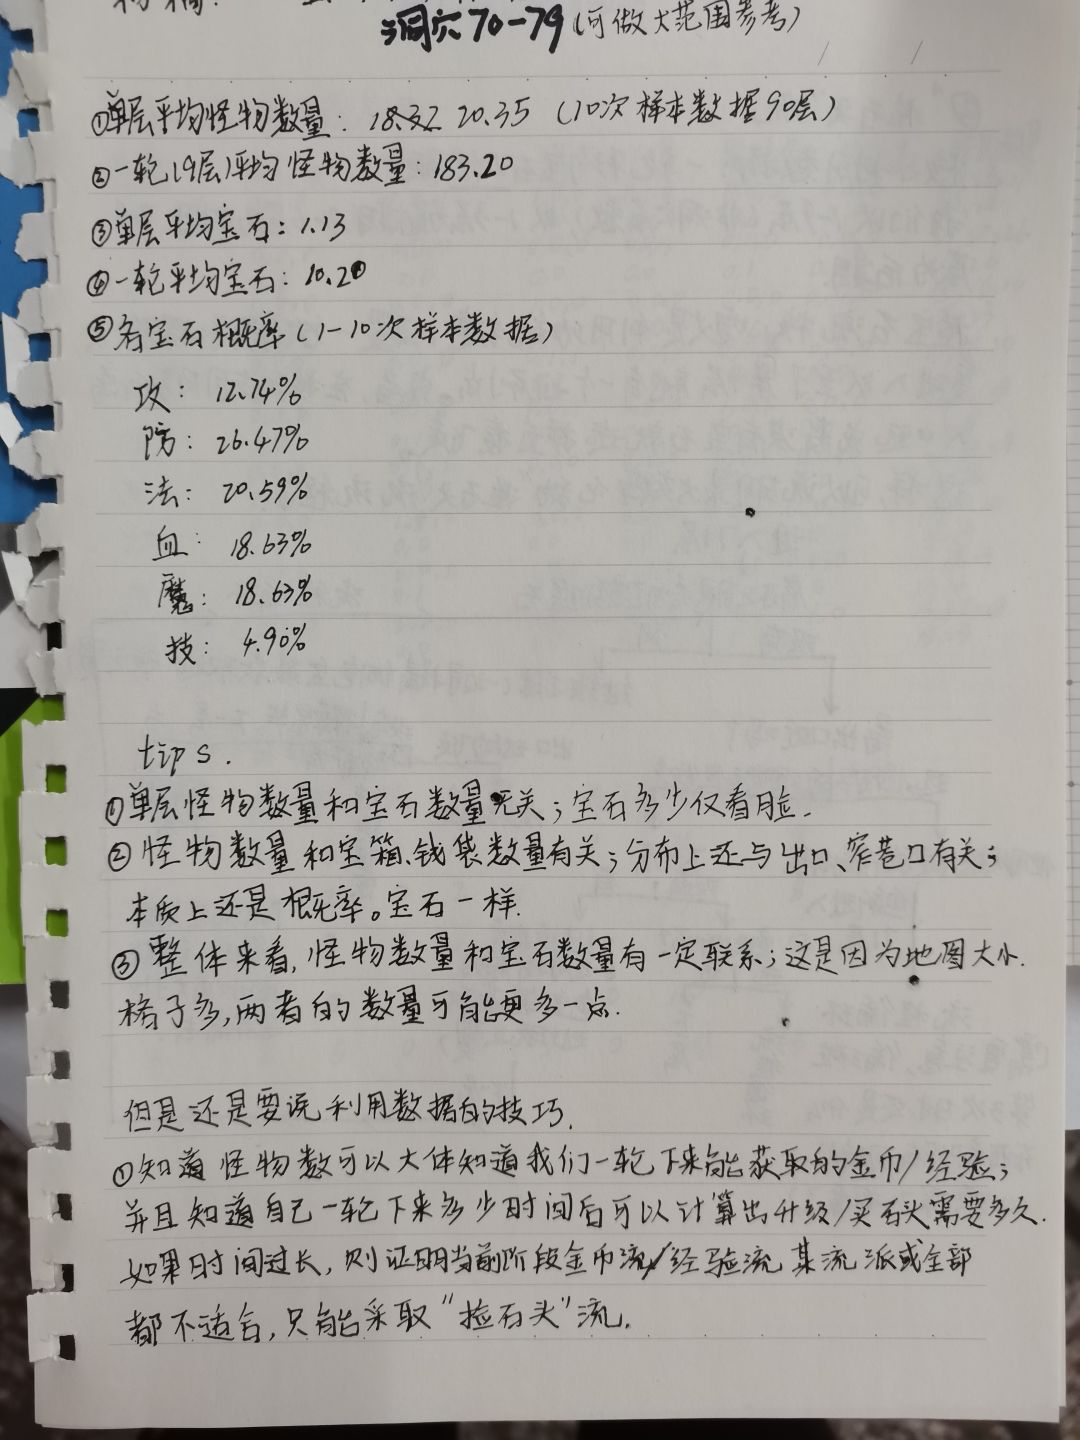 洞穴70-79(可做大范围参考)
①单层平均怪物数量: 18.32 20.35 (10次样本数据90层)
②一轮(9层)平均怪物数量: 183.20
③单层平均宝石: 1.13
④一轮平均宝石: 10.20
⑤各宝石概率(1-10次样本数据)
攻: 12.74%
防: 26.47%
法: 20.59%
血: 18.63%
魔: 18.63%
技: 4.90%
tips.
①单层怪物数量和宝石数量无关;宝石多少仅看脸.
②怪物数量和宝箱、钱袋数量有关;分布上还与出口、窄巷口有关;
本质上还是概率。宝石一样.
③整体来看,怪物数量和宝石数量有一定联系;这是因为地图大小.
格子多,两者的数量可能更多一点.
但是还是要说利用数据的技巧.
①知道怪物数可以大体知道我们一轮下来能获取的金币/经验;
并且知道自己一轮下来多少时间后可以计算出升级/买石头需要多久.
如果时间过长,则证明当前阶段金币流/经验流某流派或全部
都不适合,只能采取“捡石头”流.